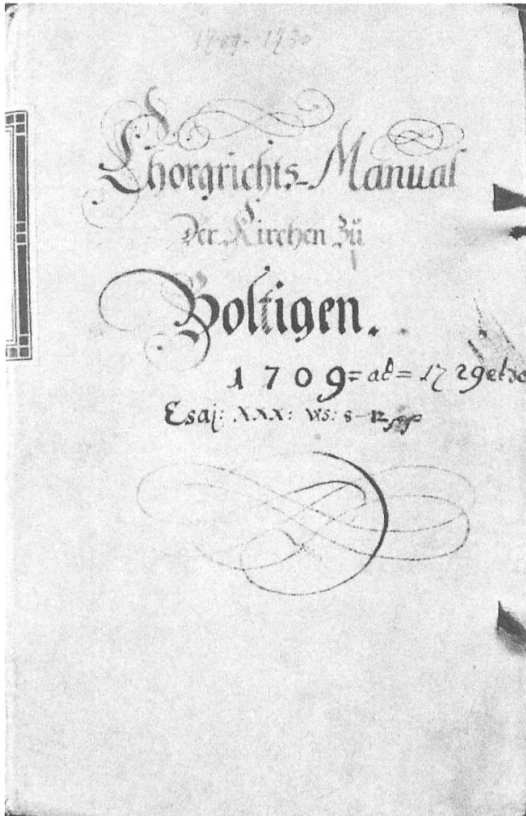 1709-1730
Chorgrichts-Manual
Der Kirchen Zů
Boltigen.
1709 = ad = 1729 et 30
Esaj: XXX: ws: 8-12